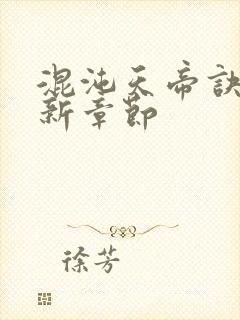 混沌天帝诀
新章节
徐芳